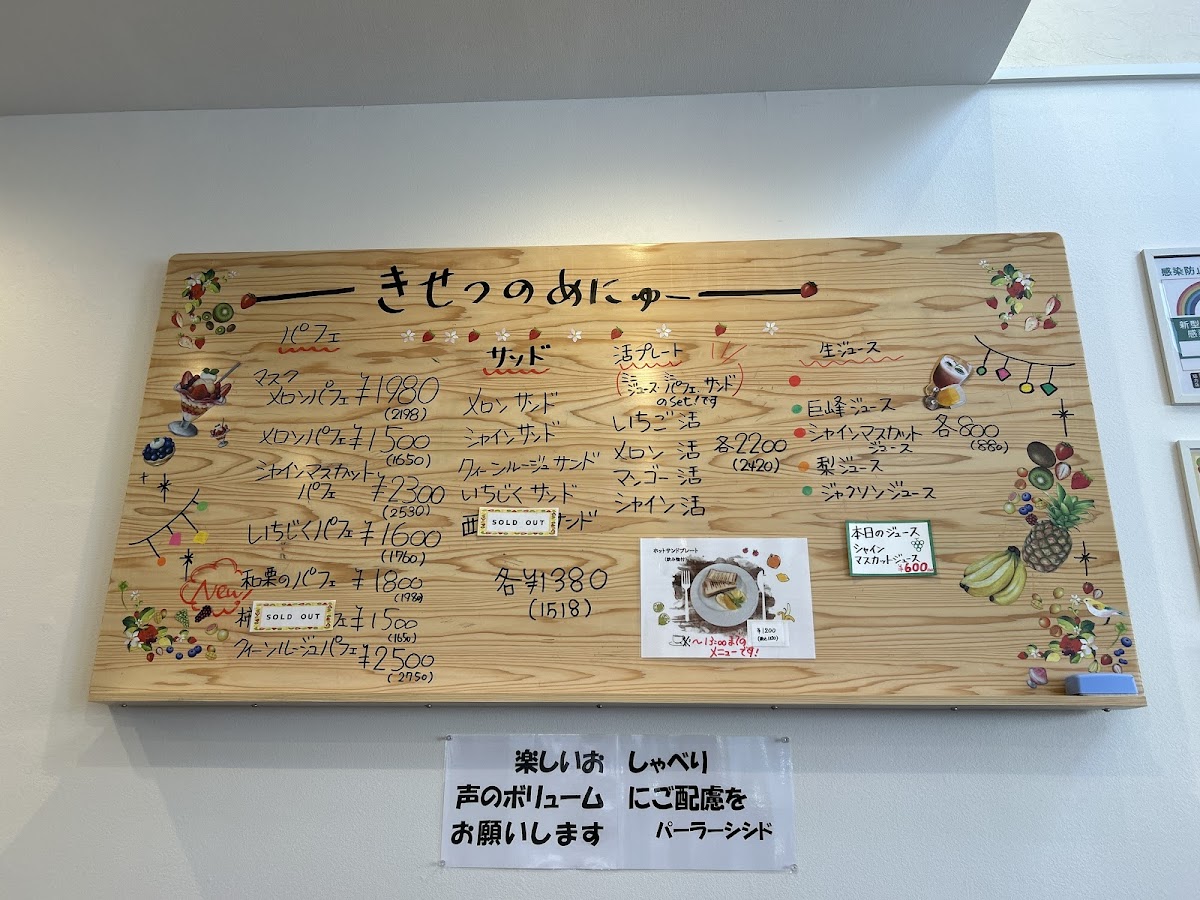 きせつのめにゅー
パフェ
マスク
メロンパフェ ¥1980
(2198)
メロンパフェ ¥1500
(1650)
シャインマスカット
パフェ ¥2300
(2530)
いちじくパフェ ¥1600
(1760)
New
和栗のパフェ ¥1800
SOLD OUT
フェ ¥1500
(1650)
クィーンルージュパフェ ¥2500
(2750)
サンド
メロンサンド
シャインサンド
クィーンルージュサンド
いちじくサンド
西
SOLD OUT
ンド
各¥1380
(1518)
活プレート
ジュース・パフェ・サンド
のset!です
いちご活
メロン活 各2200
(2420)
マンゴー活
シャイン活
ホットサンドプレート
¥1200
〜13:00までの
メニューです!
生ジュース
巨峰ジュース
シャインマスカット
ジュース
各800
(880)
梨ジュース
ジャクソンジュース
本日のジュース
シャイン
マスカットジュース
¥600
感染防止
新型
楽しいおしゃべり
声のボリュームにご配慮を
お願いします パーラーシシド